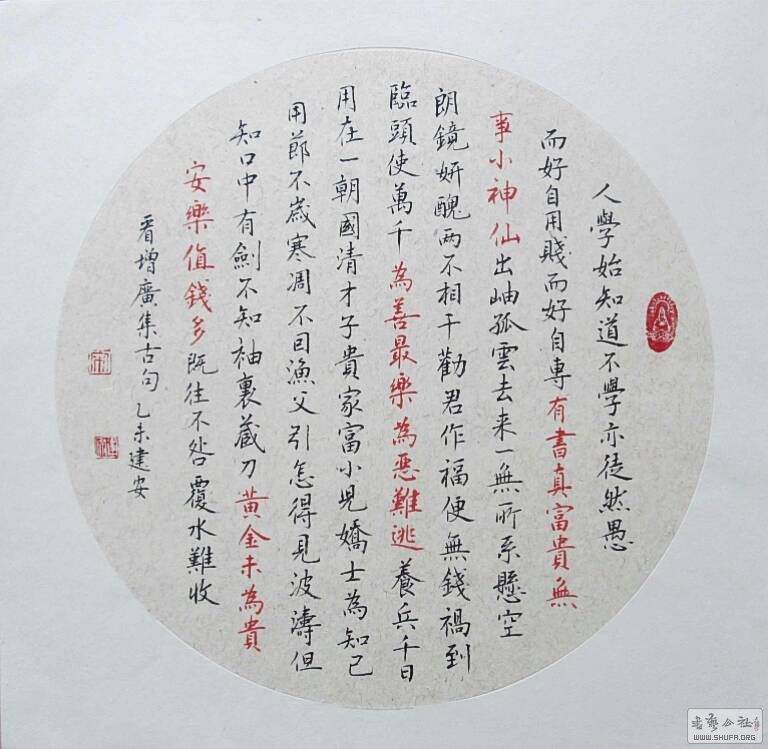 人學始知道不學亦徒然愚
而好自用賤而好自專有書真富貴無
事小神仙出岫孤雲去来一無所系懸空
朗鏡妍醜两不相干勸君作福便無錢禍到
臨頭使萬千為善最樂為惡難逃養兵千日
用在一朝國清才子貴家富小児嬌士為知已
用節不歳寒凋不回漁父引怎得見波濤但
知口中有劍不知袖裏蔵刀黄金未為貴
安樂值錢多既往不咎覆水難收
看增廣集古句乙未建安
書藝公社
WWW.SHUFA.ORG